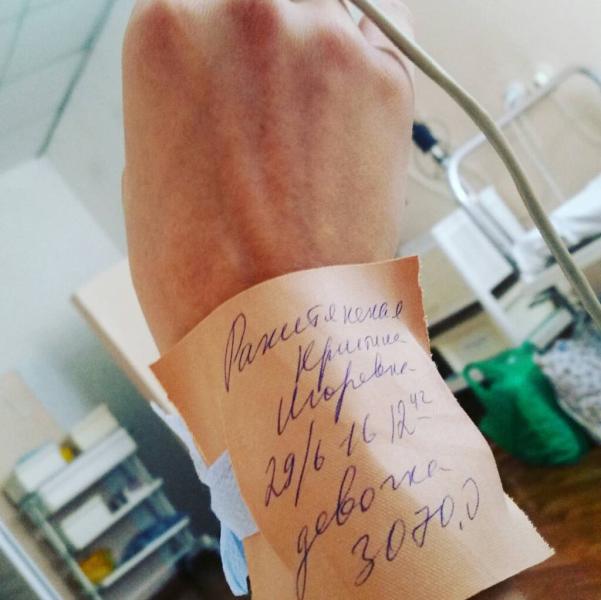 Ракитянская
Кристина
Игоревна
29/6 16 12 42
девочка
3070,0